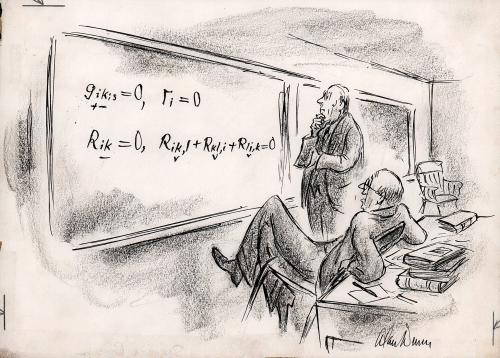 g_{ik;s}=0, Γ_i=0
R_{ik}=0, R_{ik,l}+R_{kl,i}+R_{li,k}=0
Alan Dunn